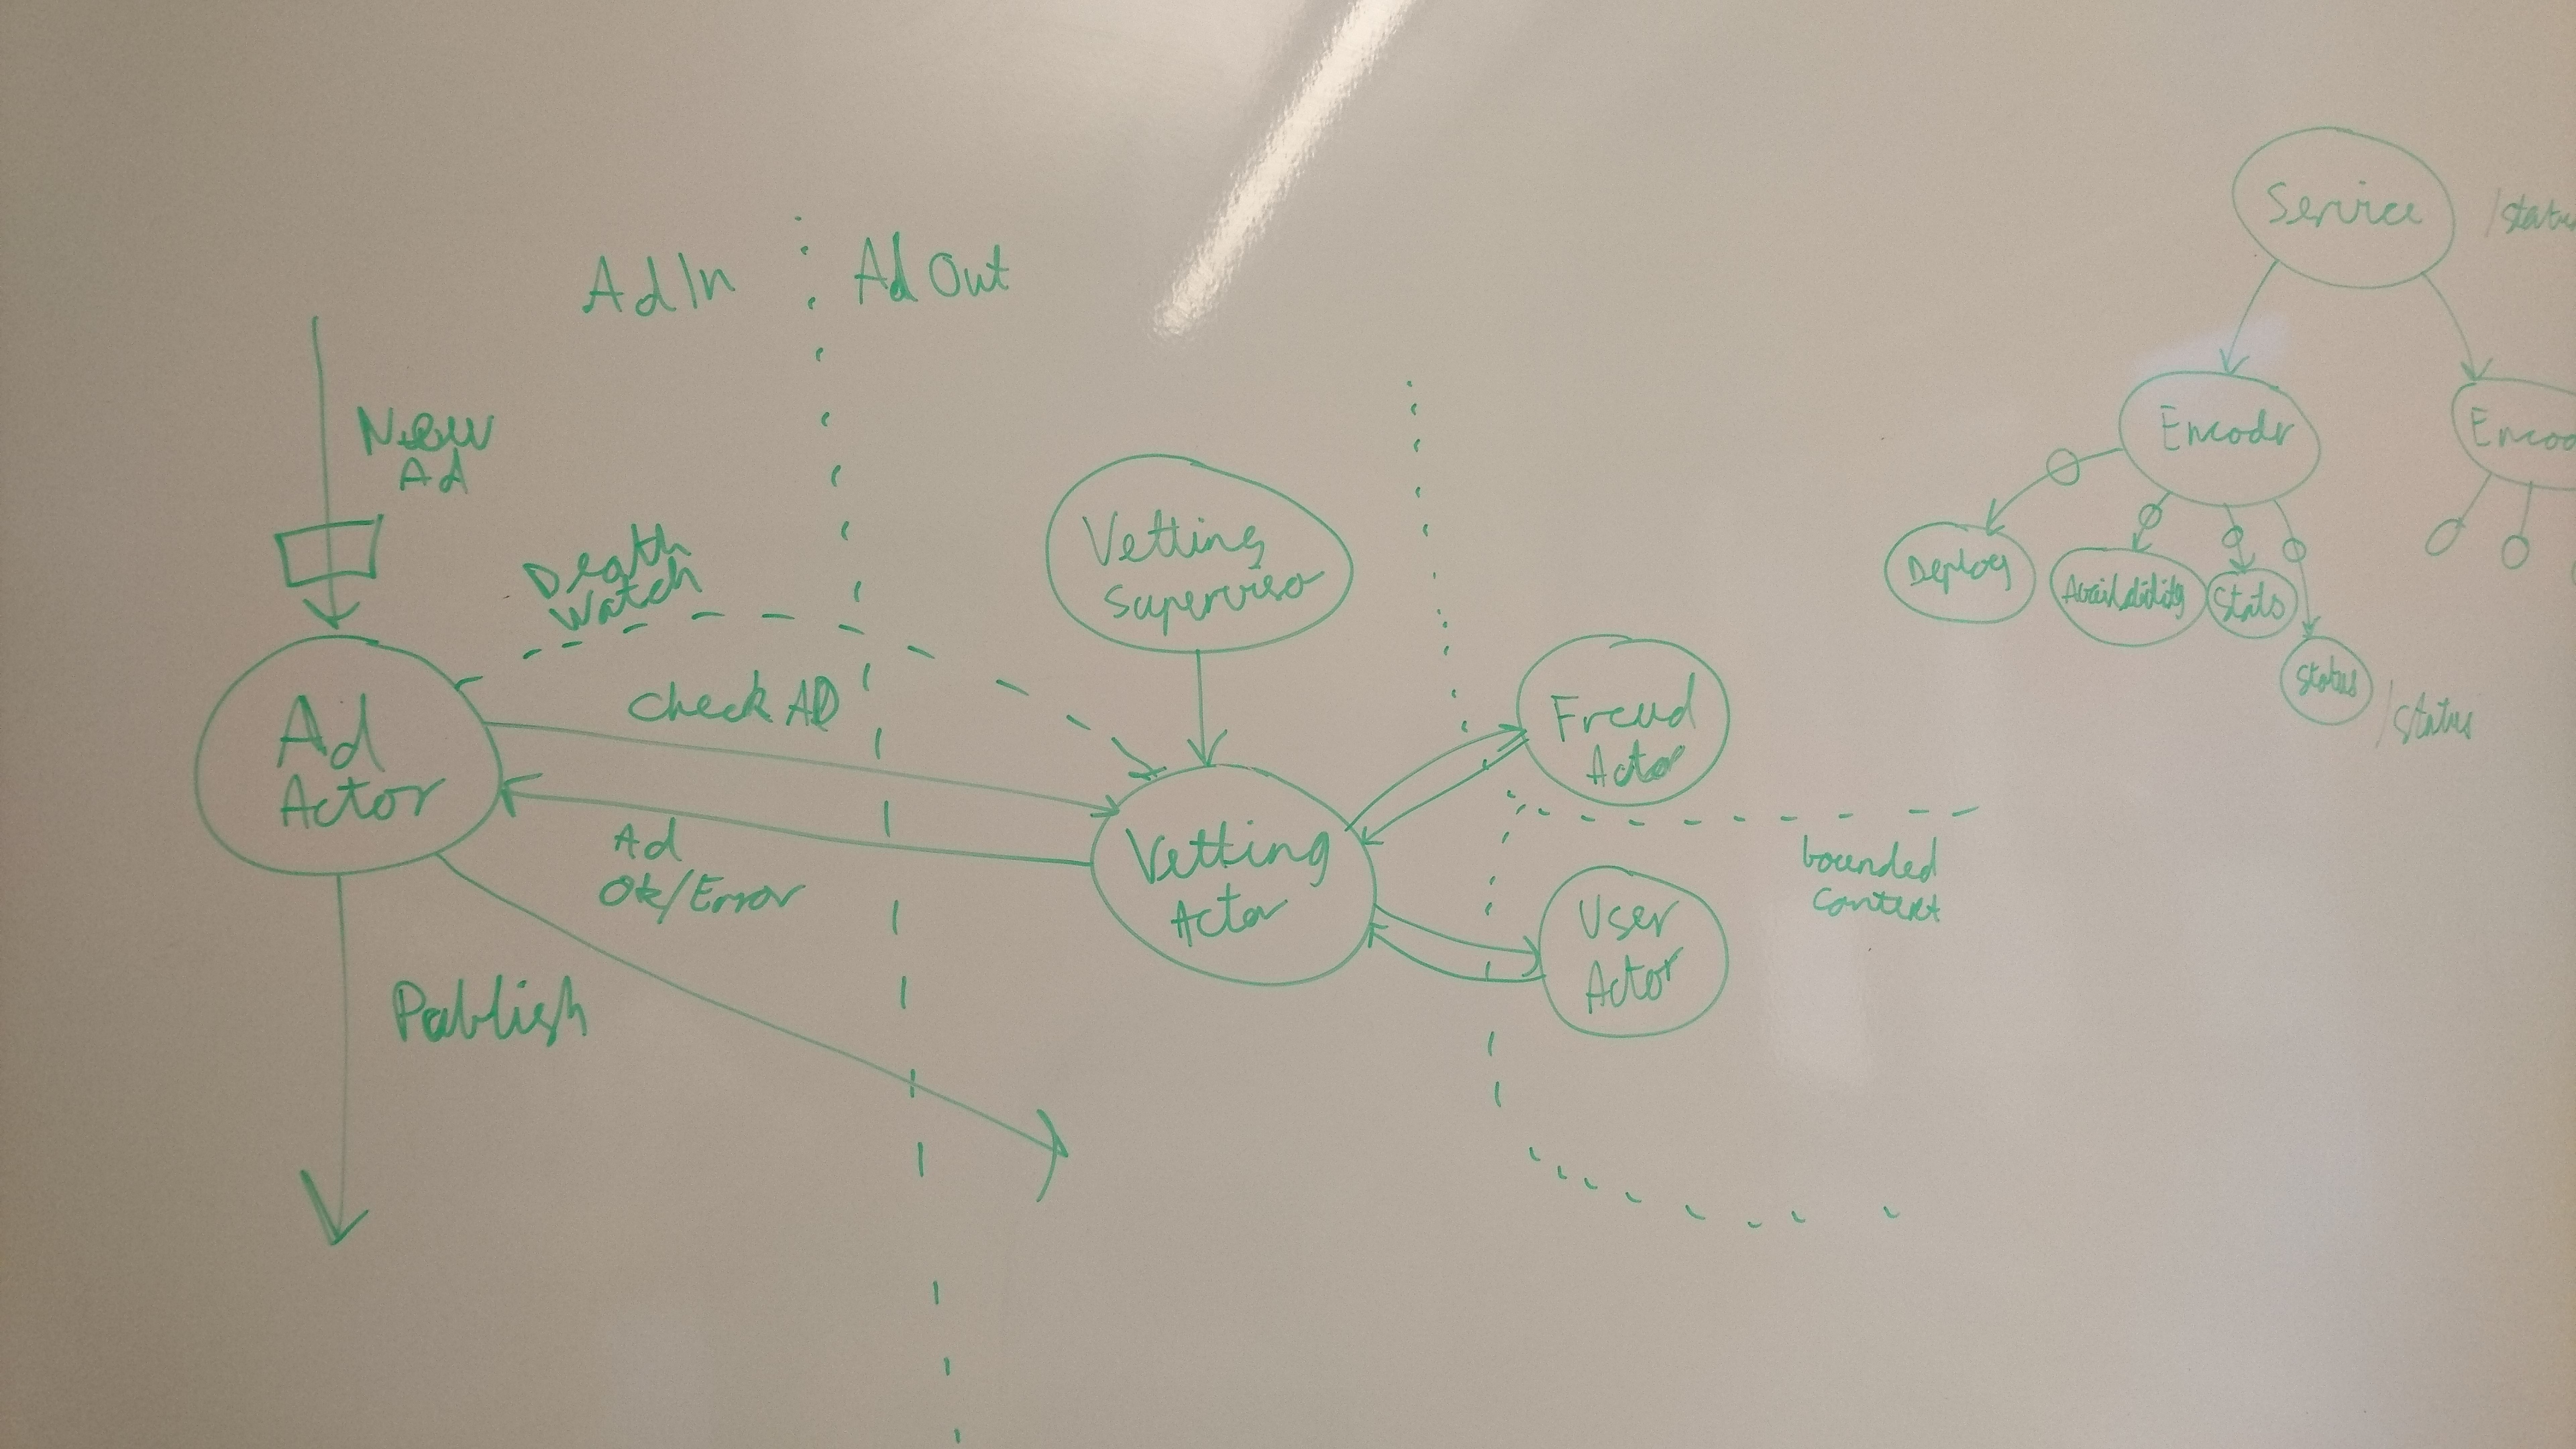 Ad In
Ad Out
New
Ad
Death
Watch
Check AD
Ad
Actor
Ad
Ok/Error
Publish
Vetting
Superviso
Vetting
Actor
Fraud
Actor
User
Actor
bounded
Context
Service
/status
Encodr
Encod
Deploy
Availability
Stats
Status
/status